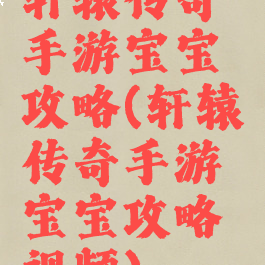 轩辕传奇
手游宝宝
攻略(轩辕
传奇手游
宝宝攻略
视频)